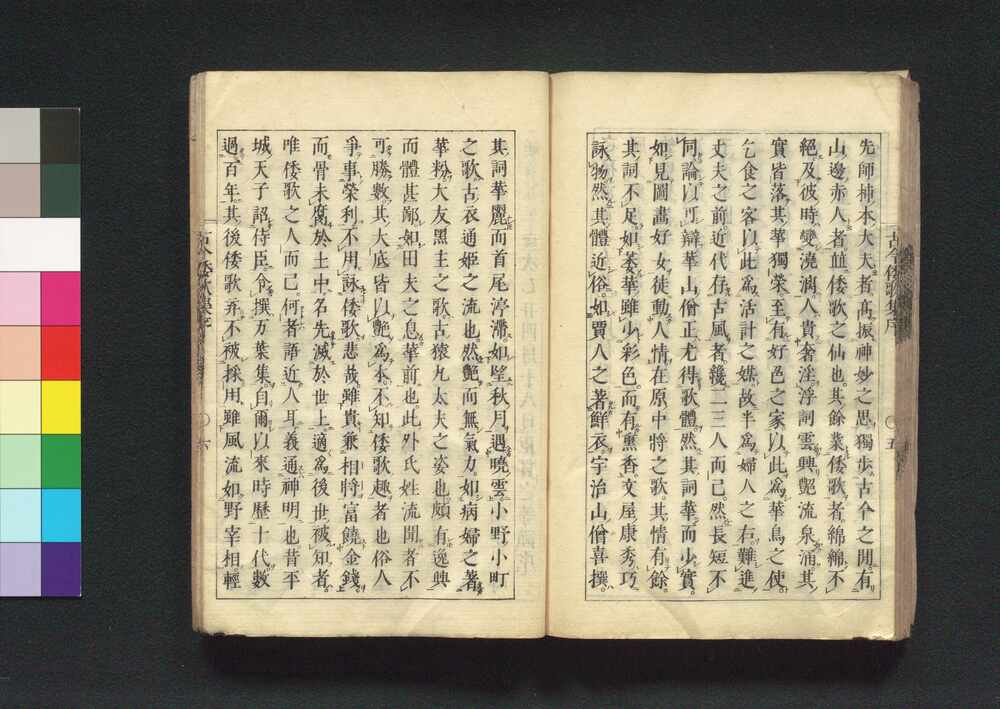 先師柿本大夫者高振神妙之思獨歩古今之間有
山邊赤人者並倭歌之仙也其餘業倭歌者綿綿不
絕及彼時變澆漓人貴奢淫浮詞雲興艷流泉涌其
實皆落其華獨榮至有好色之家以此爲華鳥之使
乞食之客以此爲活計之媒故半爲婦人之右難進
丈夫之前近代存古風者纔二三人而已然長短不
同論以可辯華山僧正尤得歌體然其詞華而少實
如見圖畵好女徒動人情在原中將之歌其情有餘
其詞不足如萎華雖少彩色而有熏香文屋康秀巧
詠物然其體近俗如賈人之著鮮衣宇治山僧喜撰
古今倭歌集序
五
其詞華麗而首尾渟滯如望秋月遇曉雲小野小町
之歌古衣通姫之流也然艷而無氣力如病婦之著
華粉大友黑主之歌古猿丸太夫之姿也頗有逸興
而體甚鄙如田夫之息華前也此外氏姓流聞者不
可勝數其大底皆以艷爲本不知倭歌趣者也俗人
爭事榮利不用詠倭歌悲哉雖貴兼相將富饒金錢
而骨未腐於土中名先滅於世上適爲後世被知者
唯倭歌之人而已何者語近人耳義通神明也昔平
城天子詔侍臣令撰万葉集自爾以來時歷十代數
過百年其後倭歌弃不被採用雖風流如野宰相輕
六